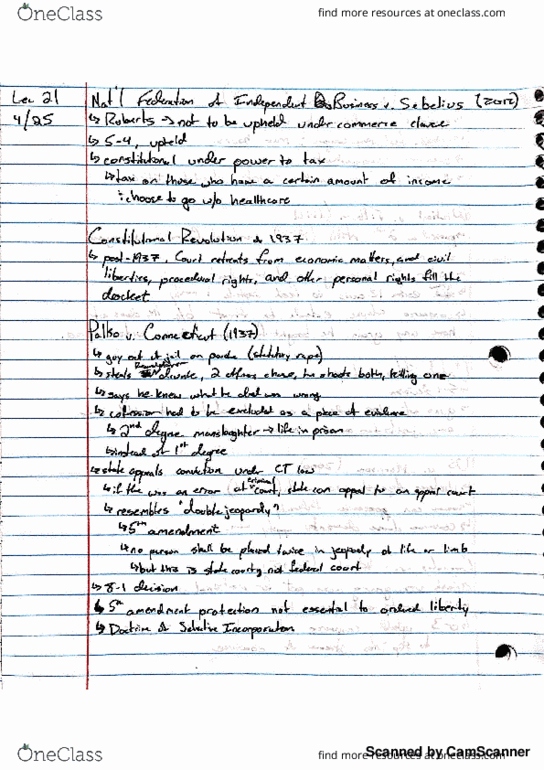 OneClass
find more resources at oneclass.com
Lec 21
4/25
Nat'l Federation of Independent Business v. Sebelius (2012)
↳ Roberts → not to be upheld under commerce clause
↳ 5-4, upheld
↳ constitutional under power to tax
↳ tax on those who have a certain amount of income
: choose to go w/o healthcare
Constitutional Revolution of 1937
↳ post-1937, Court retreats from economic matters, and civil
liberties, procedural rights, and other personal rights fill the
docket
Palko v. Connecticut (1937)
↳ guy out of jail on parole (statutory rape)
↳ steals, 2 officers chase, he shoots both, killing one
↳ says he knew what he did was wrong
↳ confession had to be excluded as a piece of evidence
↳ 2nd degree manslaughter → life in prison
↳ instead of 1st degree
↳ state appeals conviction under CT law
↳ if the was an error (at criminal court, state can appeal to an appeal court
↳ resembles "double jeopardy"
↳ 5th amendment
↳ no person shall be placed twice in jeopardy of life or limb
↳ but this is state court, not federal court
↳ 8-1 decision
↳ 5th amendment protection not essential to ordered liberty
↳ Doctrine of Selective Incorporation
OneClass
find more resources at oneclass.com
Scanned by CamScanner